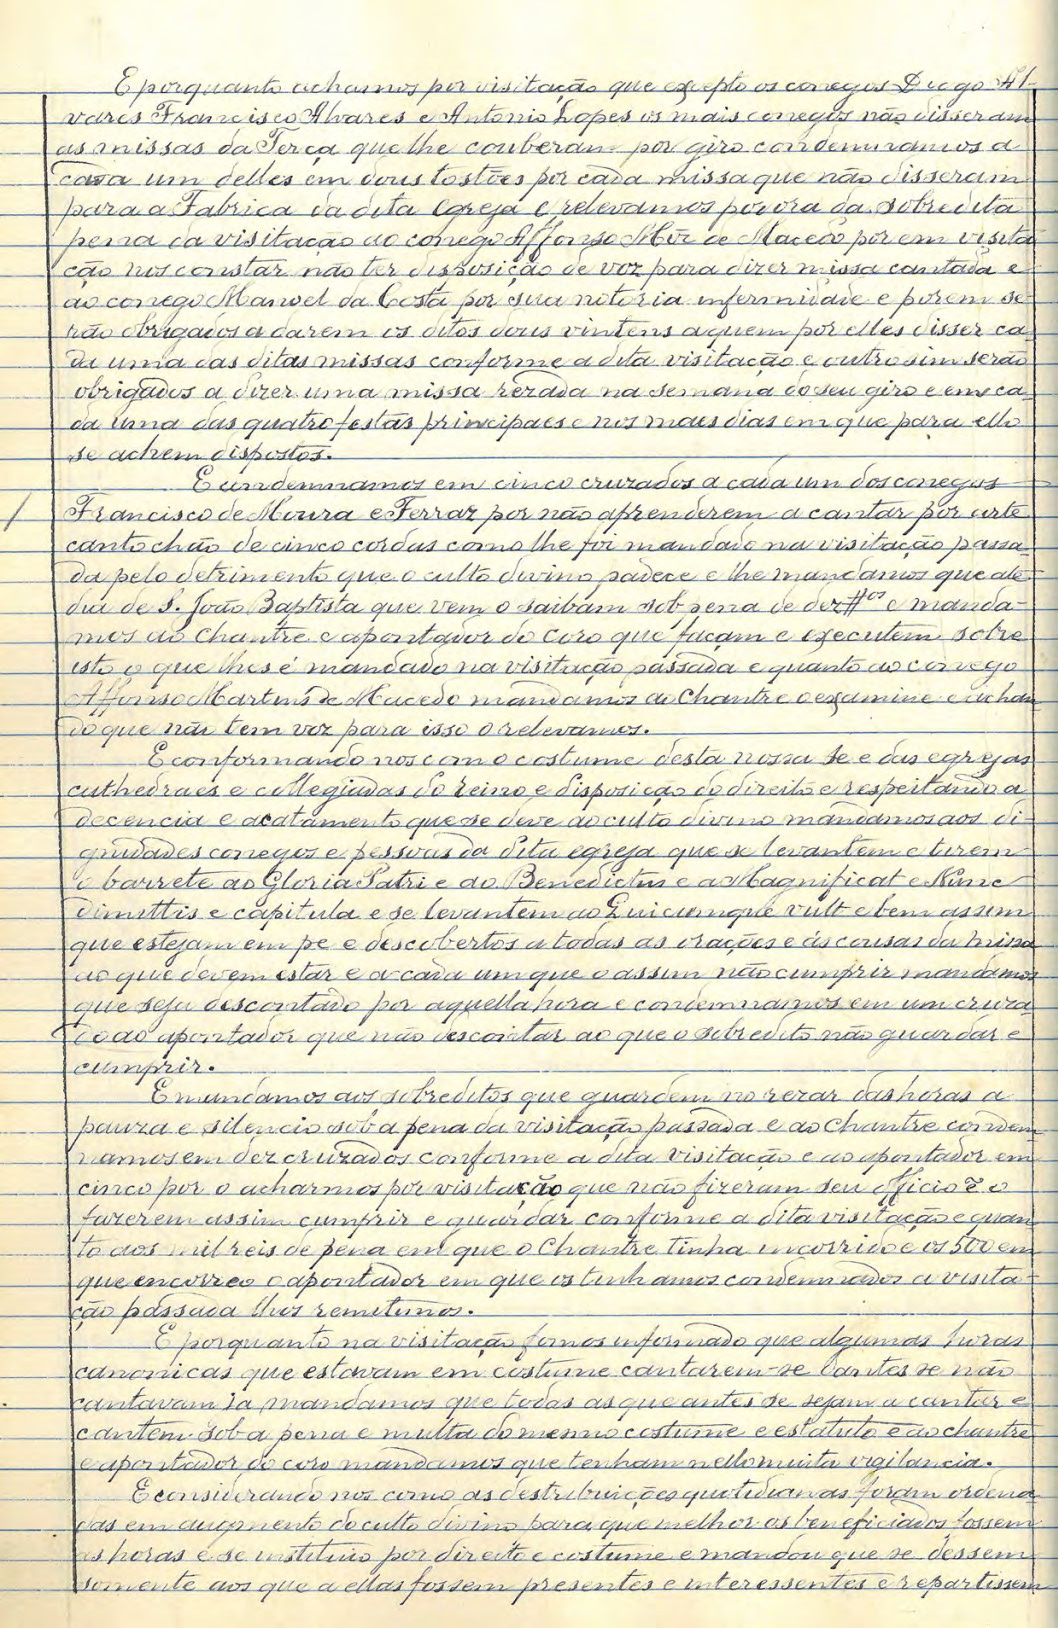 E porquanto achamos por visitação que exepto os conegos Diogo Al-
vares Francisco Alvares e Antonio Lopes os mais conegos não disseram
as missas da Terça que lhe couberam por giro condemnamos a
cada um delles em dous tostões por cada missa que não disseram
para a Fabrica da dita Egreja e relevamos por ora da sobredita
pena da visitação ao conego Affonso Miz de Macedo por em visita
ção nos constar não ter disposição de voz para dizer missa cantada e
ao conego Manoel da Costa por sua notoria infermidade e porem se
rão obrigados a darem os ditos dous vintens a quem por elles disser ca
da uma das ditas missas conforme a dita visitação e outro sim serão
obrigados a dizer uma missa rezada na semana do seu giro e em ca
da uma das quatro festas principaes e nos mais dias em que para ello
se achem dispostos.
E condemnamos em cinco cruzados a cada um dos conegos
Francisco de Moura e Ferraz por não aprenderem a cantar por arte
canto chão de cinco cordas como lhe foi mandado na visitação passa-
da pelo detrimento que o culto divino padece e lhe mandamos que até
dia de S. João Baptista que vem o saibam sob pena de dez #os e manda-
mos ao Chantre e apontador do coro que façam e executem sobre
isto o que lhes é mandado na visitação passada e quanto ao conego
Affonso Martins de Macedo mandamos ao Chantre o examine e achan
do que não tem voz para isso o relevamos.
E conformando nos com o costume desta nossa Se e das egrejas
cathedraes e collegiadas do reino e disposição do direito e respeitando a
decencia e acatamento que se deve ao culto divino mandamos aos di-
gnidades conegos e pessoas da dita egreja que se levantem e tirem
o barrete ao Gloria Patri e ao Benedictus e ao Magnificat e Nunc
dimittis e capitula e se levantem ao Quicumque vult e bem assim
que estejam em pe e descobertos a todas as orações e ás cousas da missa
ao que devem estar e a cada um que o assim não cumprir mandamos
que seja descontado por aquella hora e condemnamos em um cruza
do ao apontador que não descontar ao que o sobredito não guardar e
cumprir.
E mandamos aos sobreditos que guardem no rezar das horas a
pauza e silencio sob a pena da visitação passada e ao Chantre condem
namos em dez cruzados conforme a dita visitação e ao apontador em
cinco por o acharmos por visitação que não fizeram seu officio e o
fazerem assim cumprir e guardar conforme a dita visitação e quan
to aos mil reis de pena em que o Chantre tinha incorrido e os 500 em
que encorreo o apontador em que os tinhamos condemnados a visita
ção passada lhos remetimos.
E porquanto na visitação fomos informado que algumas horas
canonicas que estavam em costume cantarem-se dantes se não
cantavam ja mandamos que todas as que antes se sejam a cantar e
cantem sob a pena e multa do mesmo costume e estatuto e ao chantre
e apontador do coro mandamos que tenham nello muita vigilancia.
E considerando nos como as destribuições quotidianas foram ordena
das em augmento do culto divino para que melhor os beneficiados fossem
as horas e se instituio por direito e costume e mandou que se dessem
somente aos que a ellas fossem presentes e interessentes e repartissem